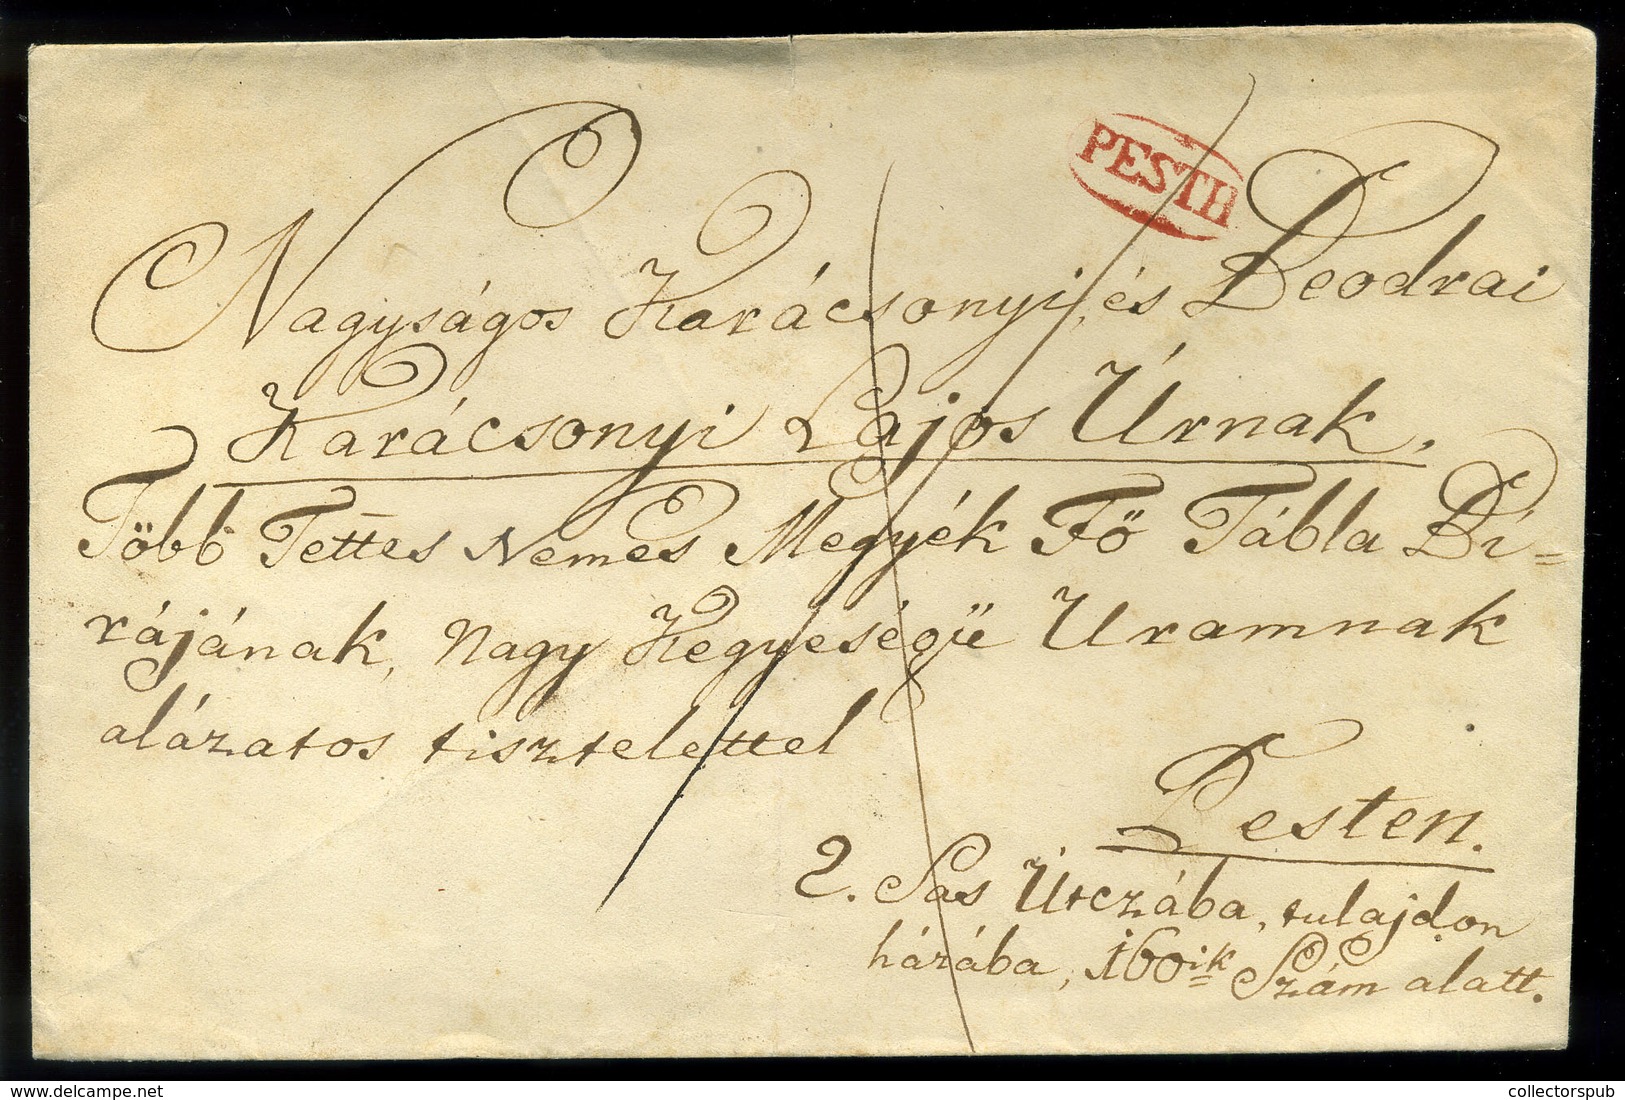 PESTH
Nagyságos Karácsonyi, és Beodrai
Karácsonyi Lajos Úrnak.
Több Tettes Nemes Megyék Fö Tábla Bi=
rájának, Nagy Kegyeségü Uramnak
alázatos tisztelettel
Pesten.
2. Sas Útczába, tulajdon
házába, 160ik Szám alatt.
collectorspub